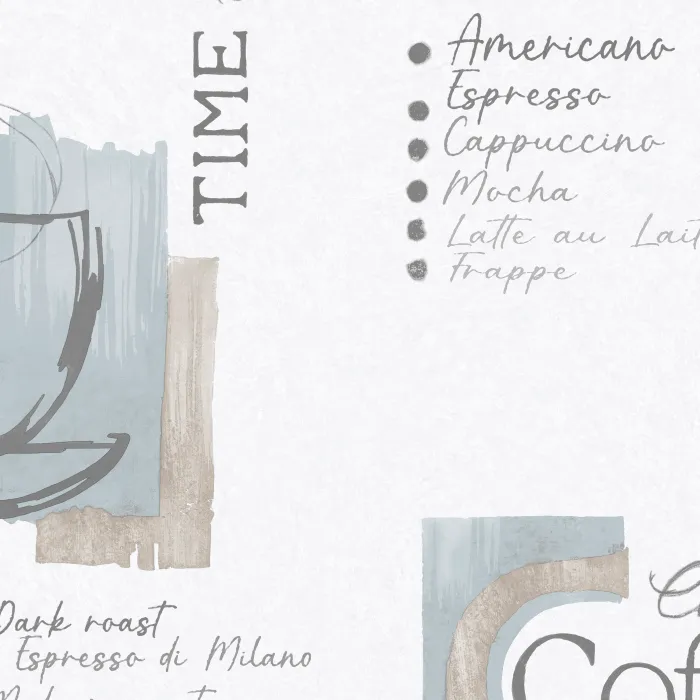 TIME
Americano
Espresso
Cappuccino
Mocha
Latte au Lait
Frappe
Dark roast
Espresso di Milano
Cof